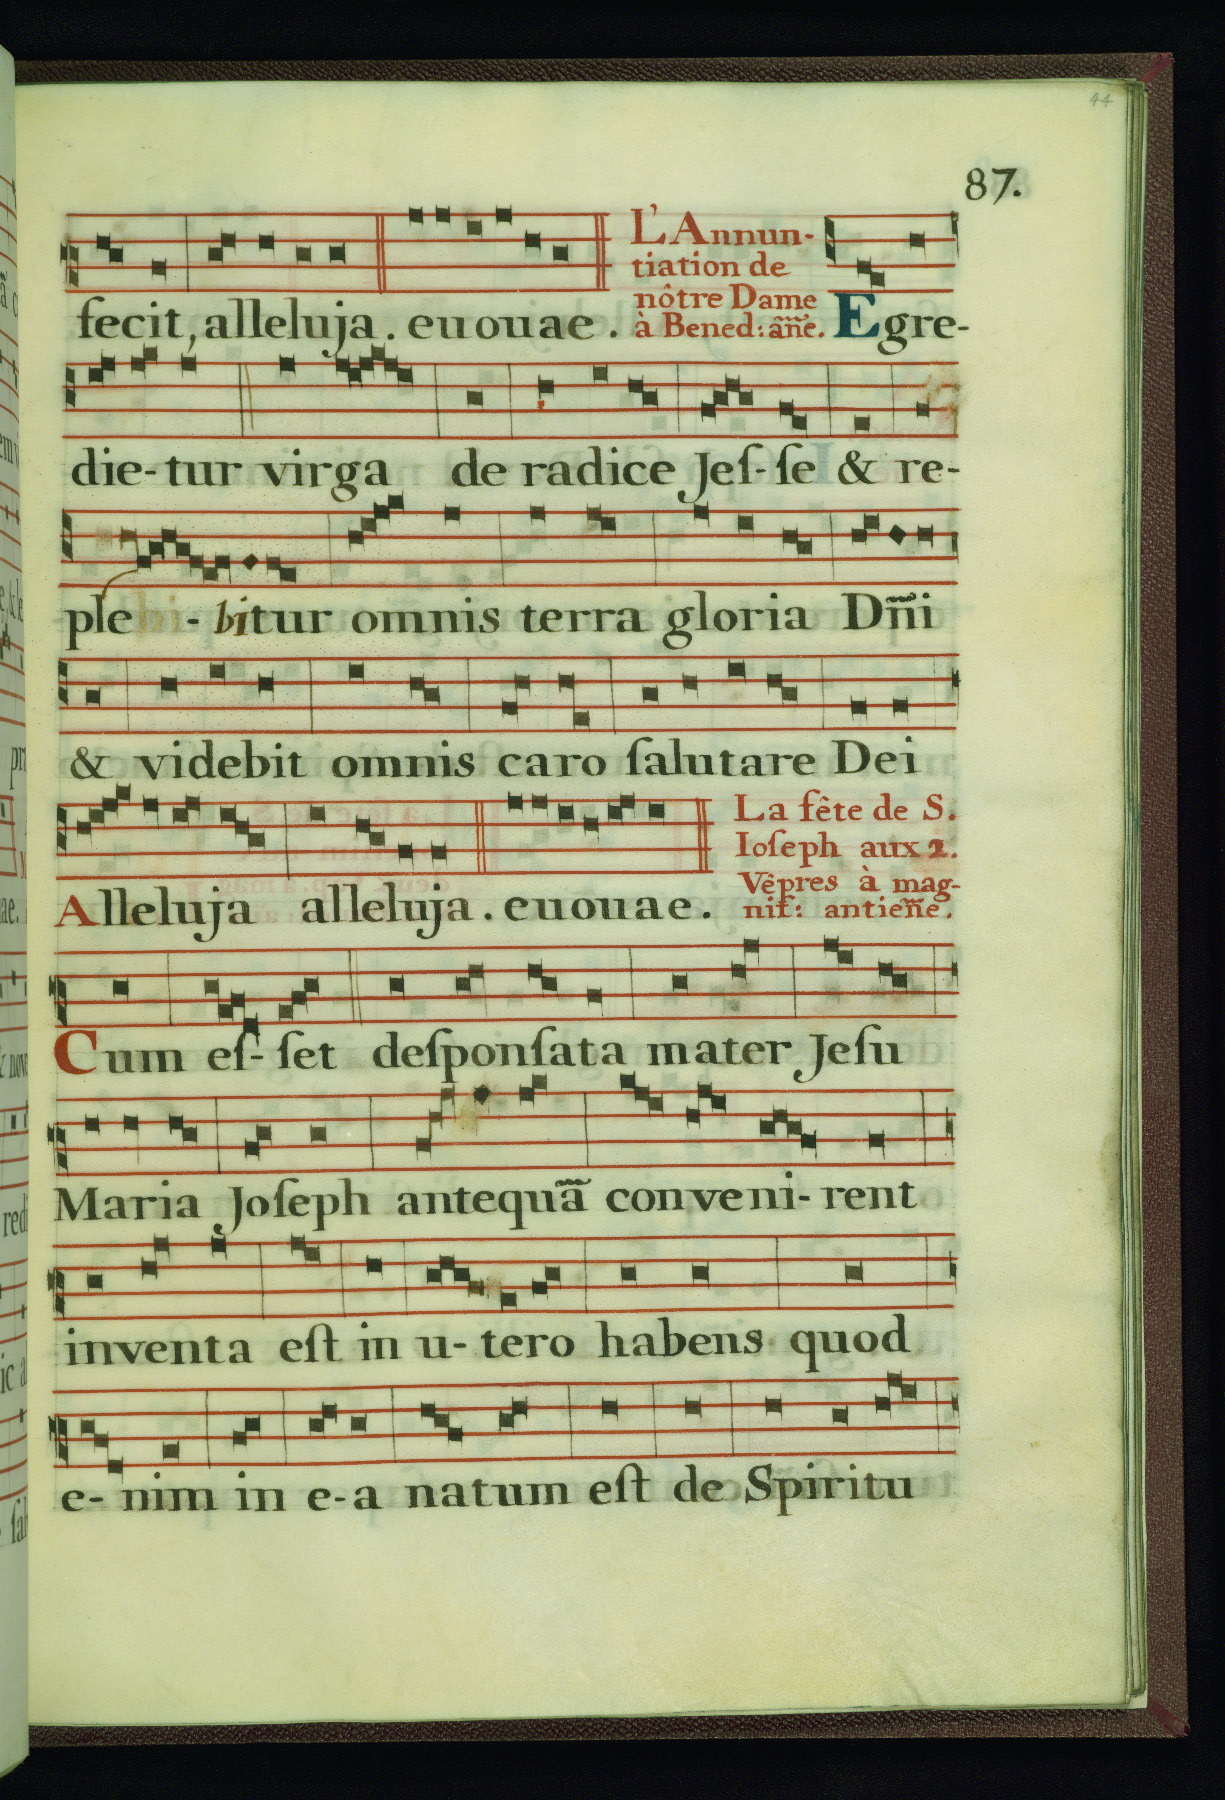 44
87.
fecit, alleluja. euouae. L'Annun-
tiation de
nôtre Dame
à Bened: añe. Egre-
die-tur virga de radice Jeſ-ſe & re-
ple - bitur omnis terra gloria Dñi
& videbit omnis caro ſalutare Dei
Alleluja alleluja. euouae. La fête de S.
Ioſeph aux 2.
Vêpres à mag-
nif: antieñe.
Cum eſ-ſet deſponſata mater Jeſu
Maria Joſeph antequã conveni-rent
inventa eſt in u-tero habens quod
e-nim in e-a natum eſt de Spiritu